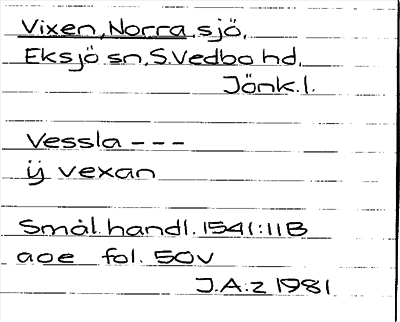 Vixen, Norra, sjö,
Eksjö sn, S. Vedbo hd,
Jönk. l.
Vessla - - -
ÿ vexan
Smål. handl. 1541:11B
aoe fol. 50v
J.A:z 1981